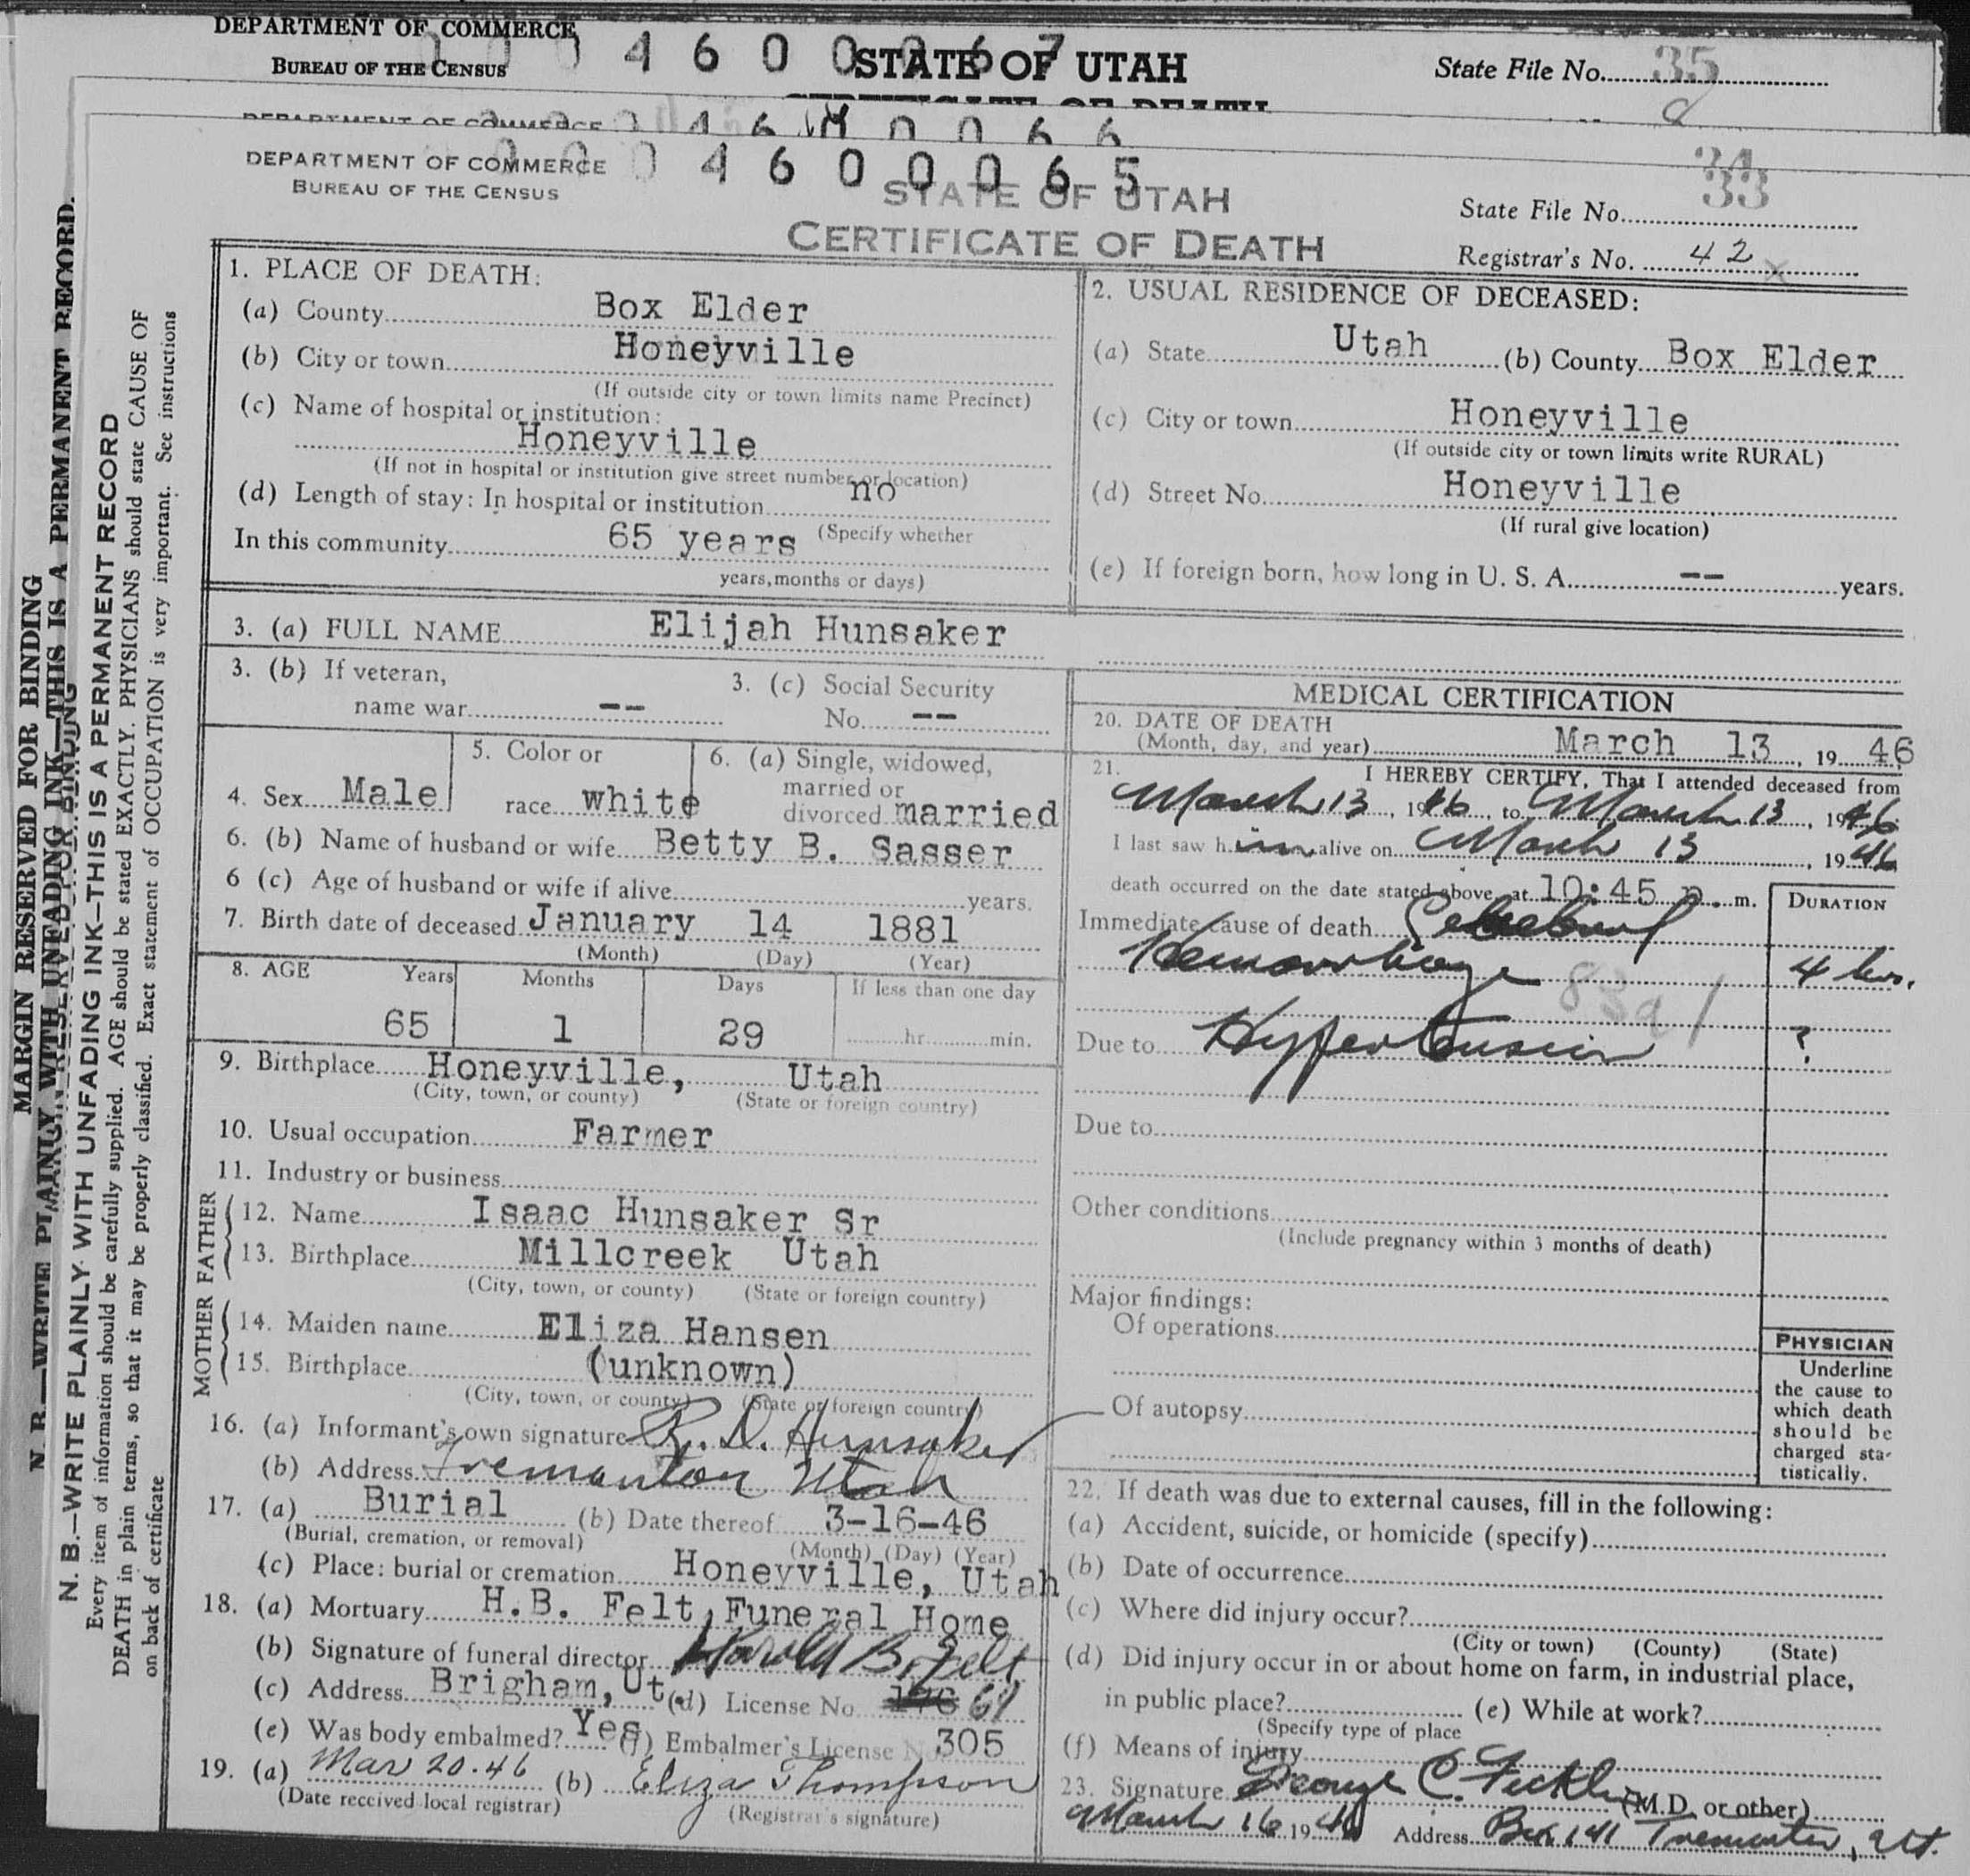 DEPARTMENT OF COMMERCE
BUREAU OF THE CENSUS
STATE OF UTAH
State File No. 35
CERTIFICATE OF DEATH
DEPARTMENT OF COMMERCE
DEPARTMENT OF COMMERCE
BUREAU OF THE CENSUS
4600065
STATE OF UTAH
CERTIFICATE OF DEATH
State File No. 33
Registrar's No. 42
MARGIN RESERVED FOR BINDING
N. B.—WRITE PLAINLY WITH UNFADING INK—THIS IS A PERMANENT RECORD.
N. B.—WRITE PLAINLY WITH UNFADING INK—THIS IS A PERMANENT RECORD
Every item of information should be carefully supplied. AGE should be stated EXACTLY. PHYSICIANS should state CAUSE OF
DEATH in plain terms, so that it may be properly classified. Exact statement of OCCUPATION is very important. See instructions
on back of certificate
1. PLACE OF DEATH:
(a) County Box Elder
(b) City or town Honeyville
(If outside city or town limits name Precinct)
(c) Name of hospital or institution:
Honeyville
(If not in hospital or institution give street number or location)
(d) Length of stay: In hospital or institution no
In this community 65 years (Specify whether
years, months or days)
2. USUAL RESIDENCE OF DECEASED:
(a) State Utah (b) County Box Elder
(c) City or town Honeyville
(If outside city or town limits write RURAL)
(d) Street No. Honeyville
(If rural give location)
(e) If foreign born, how long in U. S. A. -- years.
3. (a) FULL NAME Elijah Hunsaker
3. (b) If veteran,
name war --
3. (c) Social Security
No. --
4. Sex Male
5. Color or
race white
6. (a) Single, widowed,
married or
divorced married
6. (b) Name of husband or wife Betty B. Sasser
6 (c) Age of husband or wife if alive years.
7. Birth date of deceased January 14 1881
(Month) (Day) (Year)
8. AGE Years Months Days If less than one day
65 1 29 hr. min.
9. Birthplace Honeyville, Utah
(City, town, or county) (State or foreign country)
10. Usual occupation Farmer
11. Industry or business
FATHER
12. Name Isaac Hunsaker Sr
13. Birthplace Millcreek Utah
(City, town, or county) (State or foreign country)
MOTHER
14. Maiden name Eliza Hansen
15. Birthplace (unknown)
(City, town, or county) (State or foreign country)
16. (a) Informant's own signature R. D. Hunsaker
(b) Address Tremonton Utah
17. (a) Burial (b) Date thereof 3-16-46
(Burial, cremation, or removal) (Month) (Day) (Year)
(c) Place: burial or cremation Honeyville, Utah
18. (a) Mortuary H.B. Felt, Funeral Home
(b) Signature of funeral director Harold B. Felt
(c) Address Brigham, Ut. (d) License No. 61
(e) Was body embalmed? Yes (f) Embalmer's License No. 305
19. (a) Mar 20.46 (b) Eliza Thompson
(Date received local registrar) (Registrar's signature)
MEDICAL CERTIFICATION
20. DATE OF DEATH
(Month, day, and year) March 13, 1946
21. I HEREBY CERTIFY, That I attended deceased from
March 13, 1946, to March 13, 1946
I last saw him alive on March 13, 1946
death occurred on the date stated above at 10:45 p. m.
DURATION
Immediate cause of death Cerebral
Hemorrhage 4 hrs.
Due to Hypertension ?
Due to
Other conditions
(Include pregnancy within 3 months of death)
Major findings:
Of operations
Of autopsy
PHYSICIAN
Underline
the cause to
which death
should be
charged sta-
tistically.
22. If death was due to external causes, fill in the following:
(a) Accident, suicide, or homicide (specify)
(b) Date of occurrence
(c) Where did injury occur?
(City or town) (County) (State)
(d) Did injury occur in or about home on farm, in industrial place,
in public place? (e) While at work?
(Specify type of place
(f) Means of injury
23. Signature George C. Ficklin (M.D. or other)
March 16 1946 Address Box 141 Tremonton, Ut.